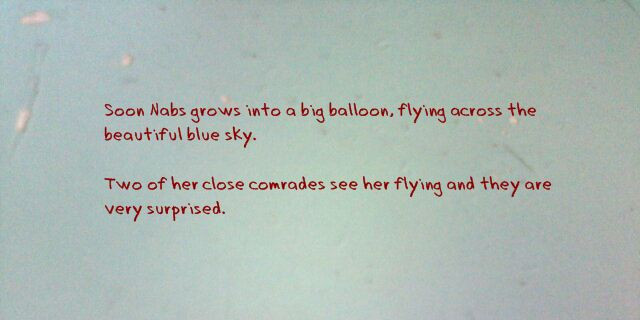 Soon Nabs grows into a big balloon, flying across the
beautiful blue sky.
Two of her close comrades see her flying and they are
very surprised.